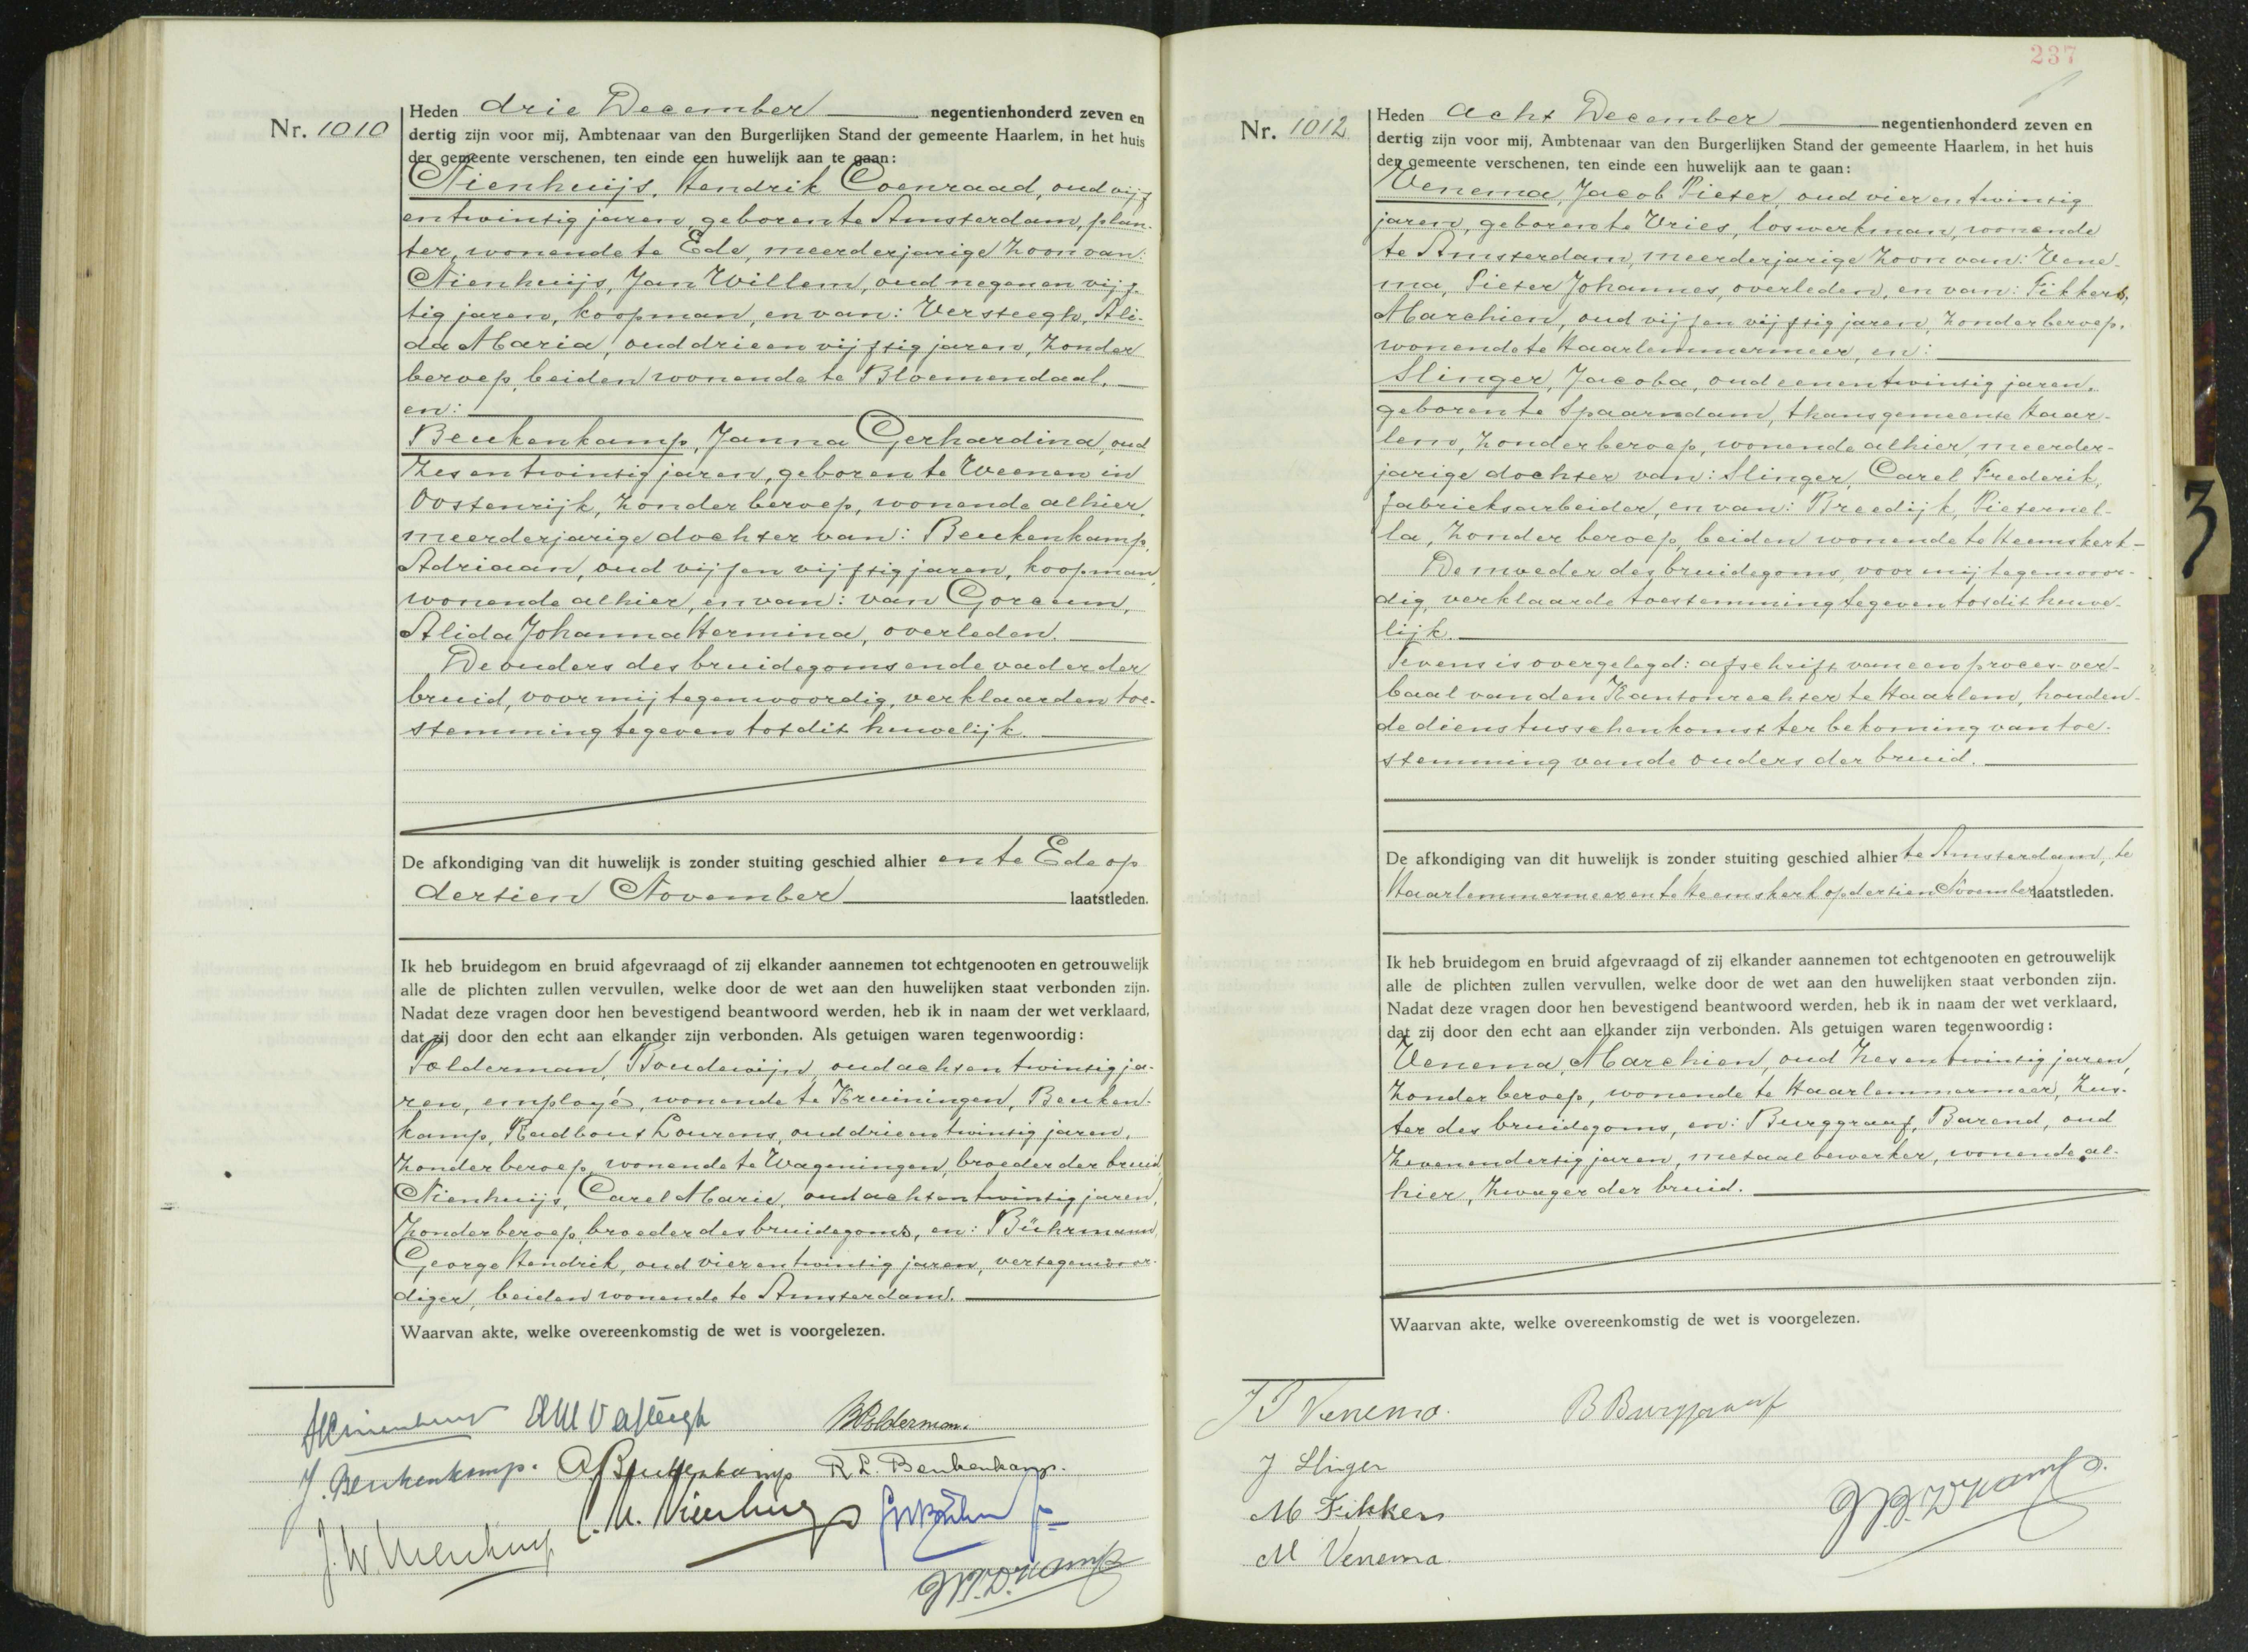 Nr. 1010
Heden drie December negentienhonderd zeven en
dertig zijn voor mij, Ambtenaar van den Burgerlijken Stand der gemeente Haarlem, in het huis
der gemeente verschenen, ten einde een huwelijk aan te gaan:
Nienhuijs, Hendrik Coenraad, oud vijf
en twintig jaren, geboren te Amsterdam, plan-
ter, wonende te Ede, meerderjarige zoon van:
Nienhuijs, Jan Willem, oud negen en vijf-
tig jaren, koopman, en van: Versteegh, Ali-
da Maria, oud drie en vijftig jaren, zonder
beroep, beiden wonende te Bloemendaal,
en:
Beukenkamp, Janna Gerhardina, oud
zes en twintig jaren, geboren te Weenen in
Oostenrijk, zonder beroep, wonende alhier,
meerderjarige dochter van: Beukenkamp,
Adriaan, oud vijf en vijftig jaren, koopman,
wonende alhier, en van: van Gorcum,
Alida Johanna Hermina, overleden.
De ouders des bruidegoms en de vader der
bruid, voor mij tegenwoordig, verklaarden toe-
stemming te geven tot dit huwelijk.
De afkondiging van dit huwelijk is zonder stuiting geschied alhier en te Ede op
dertien November laatstleden.
Ik heb bruidegom en bruid afgevraagd of zij elkander aannemen tot echtgenooten en getrouwelijk
alle de plichten zullen vervullen, welke door de wet aan den huwelijken staat verbonden zijn.
Nadat deze vragen door hen bevestigend beantwoord werden, heb ik in naam der wet verklaard,
dat zij door den echt aan elkander zijn verbonden. Als getuigen waren tegenwoordig:
Polderman, Boudewijn, oud acht en twintig ja-
ren, employé, wonende te Kruiningen, Beuken-
kamp, Radbout Lourens, oud drie en twintig jaren,
zonder beroep, wonende te Wageningen, broeder der bruid,
Nienhuijs, Carel Marie, oud acht en twintig jaren,
zonder beroep, broeder des bruidegoms, en: Bührmann,
George Hendrik, oud vier en twintig jaren, vertegenwoor-
diger, beiden wonende te Amsterdam.
Waarvan akte, welke overeenkomstig de wet is voorgelezen.
HCNienhuys AM Versteegh BPolderman.
J. Beukenkamp. A. Beukenkamp R. L. Beukenkamp.
J. W. Nienhuys C. M. Nienhuys
237
Nr. 1012
Heden acht December negentienhonderd zeven en
dertig zijn voor mij, Ambtenaar van den Burgerlijken Stand der gemeente Haarlem, in het huis
der gemeente verschenen, ten einde een huwelijk aan te gaan:
Venema, Jacob Pieter, oud vier en twintig
jaren, geboren te Vries, loswerkman, wonende
te Amsterdam, meerderjarige zoon van: Vene-
ma, Pieter Johannes, overleden, en van: Fikkers,
Marchien, oud vijf en vijftig jaren, zonder beroep,
wonende te Haarlemmermeer, en:
Slinger, Jacoba, oud een en twintig jaren,
geboren te Spaarndam, thans gemeente Haar-
lem, zonder beroep, wonende alhier, meerder-
jarige dochter van: Slinger, Carel Frederik,
fabrieksarbeider, en van: Breedijk, Pieternel-
la, zonder beroep, beiden wonende te Heemskerk.
De moeder des bruidegoms, voor mij tegenwoor-
dig, verklaarde toestemming te geven tot dit huwe-
lijk.
Tevens is overgelegd: afschrift van een proces-ver-
baal van den Kantonrechter te Haarlem, houden-
de diens tusschenkomst ter bekoming van toe-
stemming van de ouders der bruid.
De afkondiging van dit huwelijk is zonder stuiting geschied alhier te Amsterdam, te
Haarlemmermeer en te Heemskerk op dertien November laatstleden.
Ik heb bruidegom en bruid afgevraagd of zij elkander aannemen tot echtgenooten en getrouwelijk
alle de plichten zullen vervullen, welke door de wet aan den huwelijken staat verbonden zijn.
Nadat deze vragen door hen bevestigend beantwoord werden, heb ik in naam der wet verklaard,
dat zij door den echt aan elkander zijn verbonden. Als getuigen waren tegenwoordig:
Venema, Marchien, oud zes en twintig jaren,
zonder beroep, wonende te Haarlemmermeer, zus-
ter des bruidegoms, en: Burggraaf, Barend, oud
zeven en dertig jaren, metaalbewerker, wonende al-
hier, zwager der bruid.
Waarvan akte, welke overeenkomstig de wet is voorgelezen.
J P Venema. B Burggraaf
J Slinger
M Fikkers
M Venema.
3